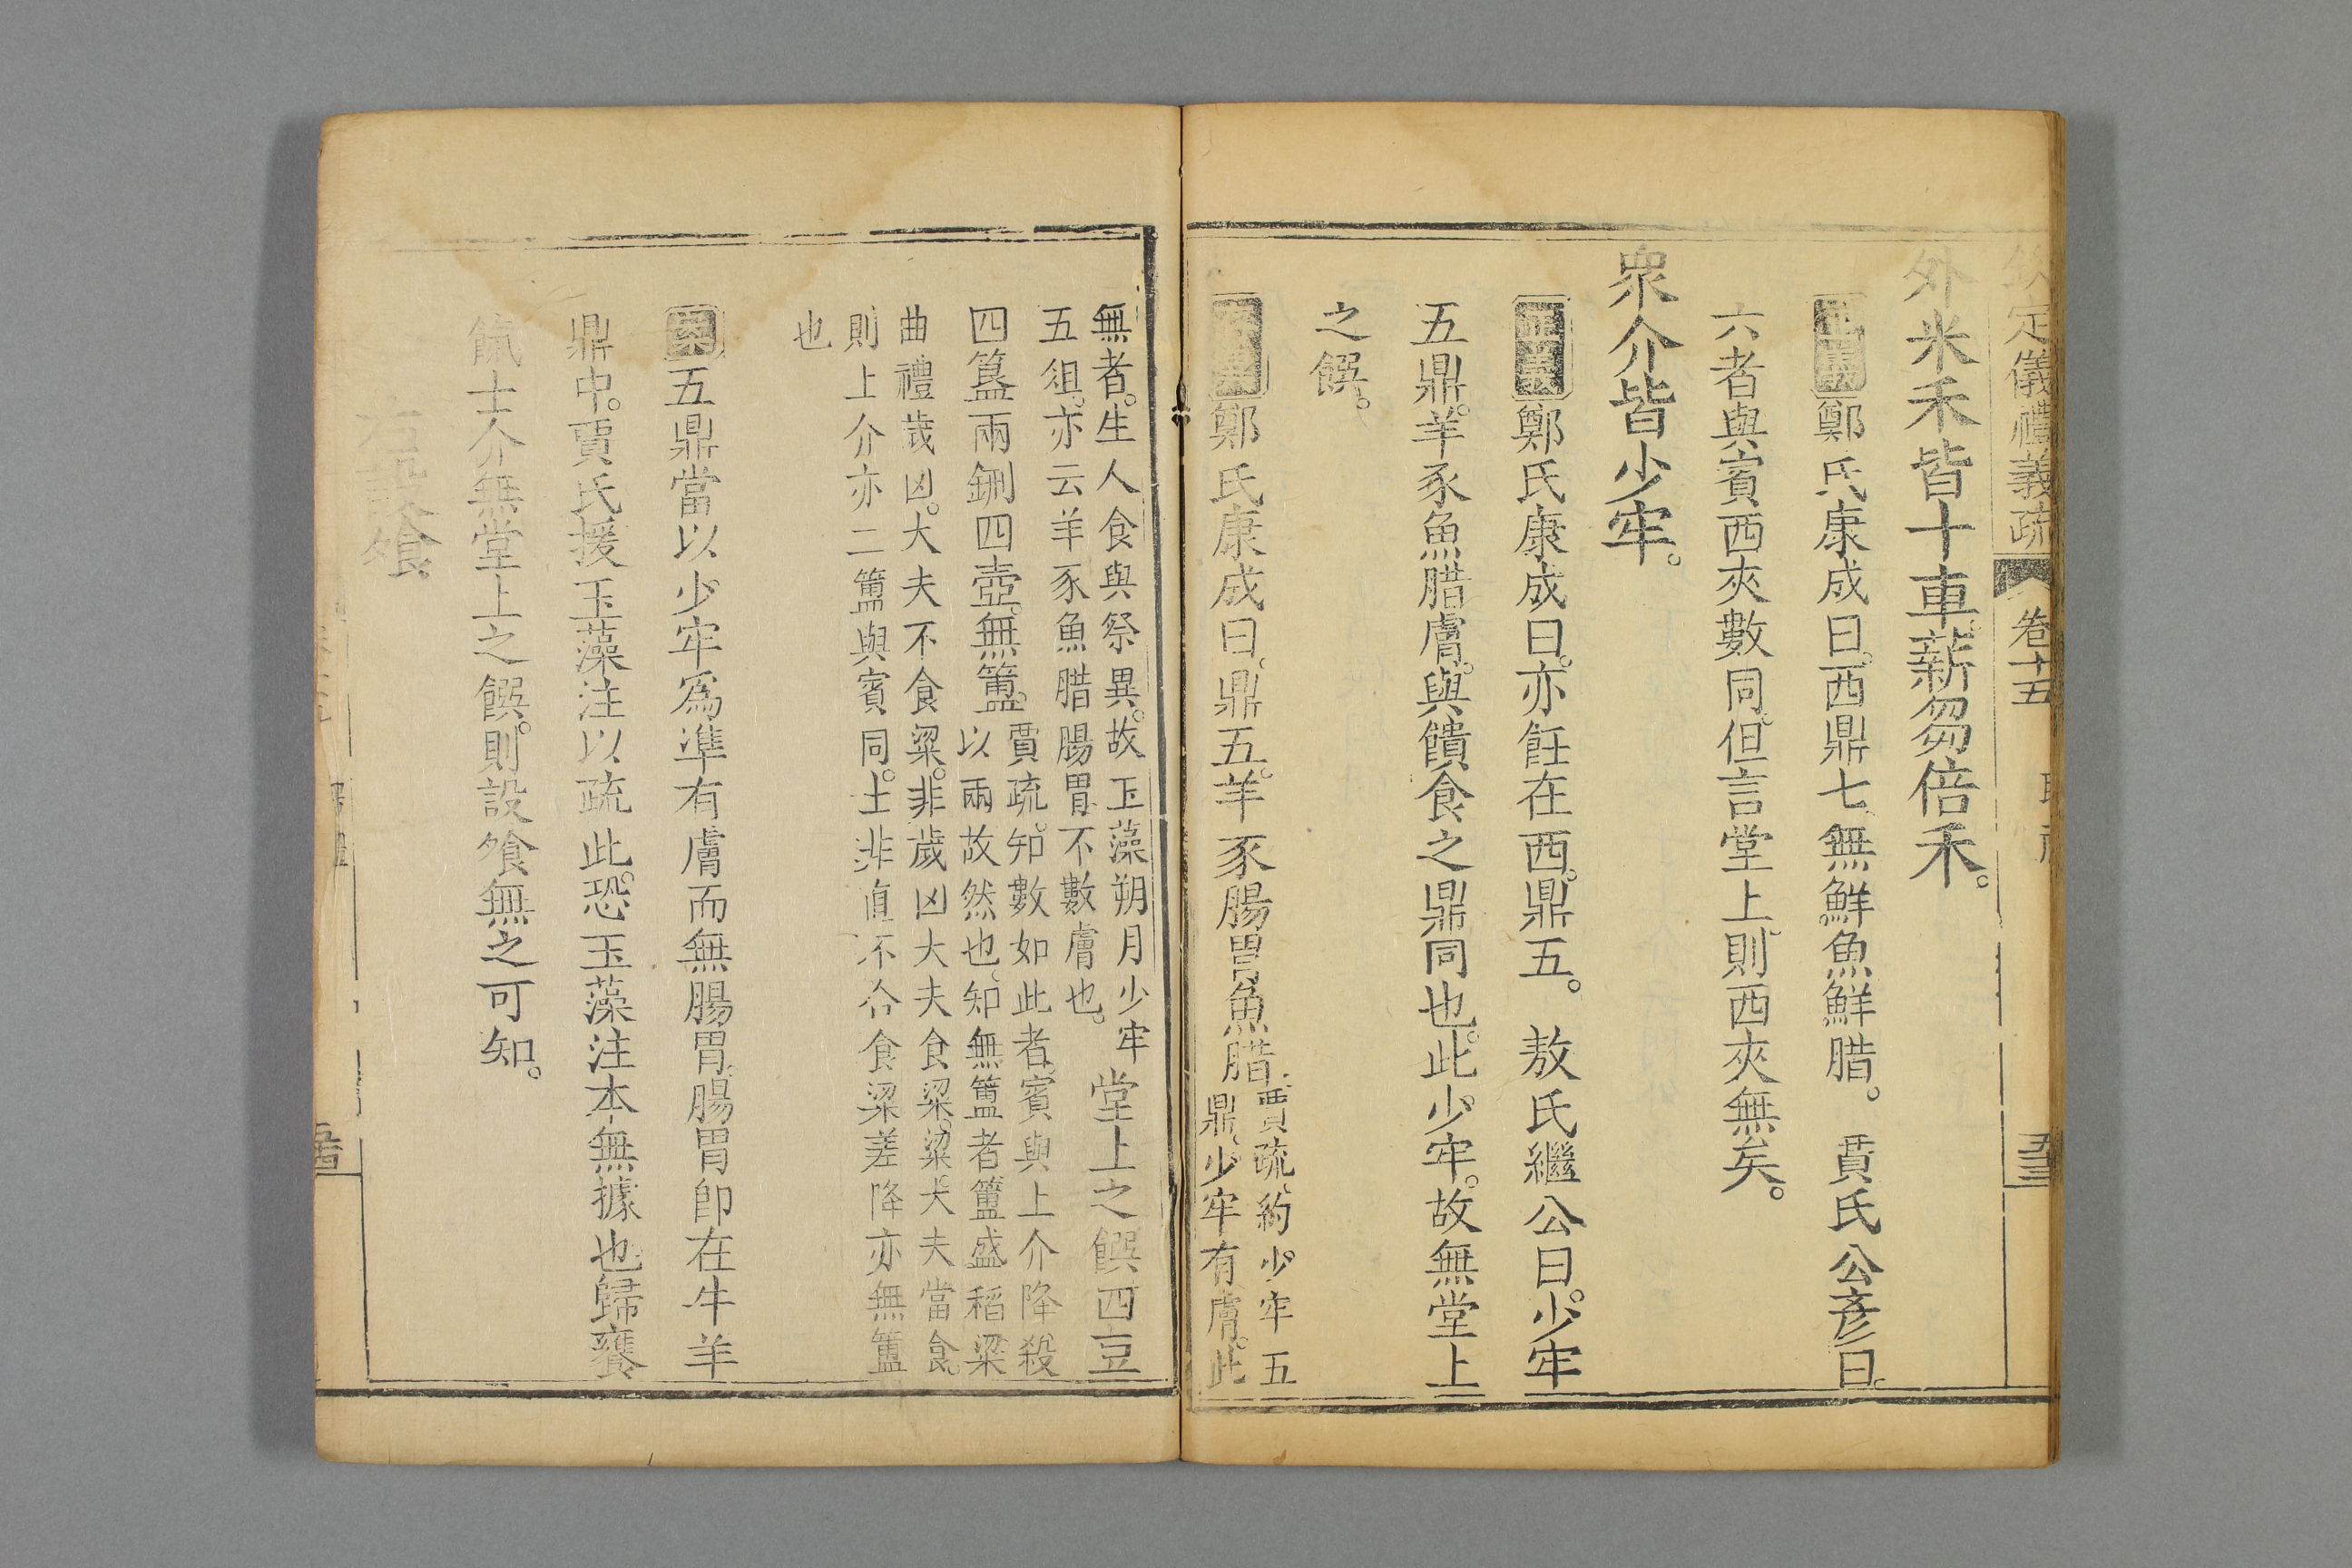 欽定儀禮義疏 卷十五 五三
外米禾皆十車薪芻倍禾。
正義鄭氏康成曰。西鼎七、無鮮魚鮮腊。 賈氏公彥曰。
六者與賓西夾數同。但言堂上、則西夾無矣。
衆介皆少牢。
正義鄭氏康成曰。亦飪在西。鼎五。 敖氏繼公曰。少牢
五鼎。羊豕魚腊膚。與饋食之鼎同也。此少牢。故無堂上
之饌。
鄭氏康成曰、鼎五。羊豕腸胃魚腊。
賈疏、約少牢五
鼎、少牢有膚。此
無者。生人食與祭異。故玉藻朔月少牢
五俎。亦云羊豕魚腊腸胃、不數膚也。
堂上之饌四豆
四簋兩鉶四壺。無簠。
賈疏。知數如此者。賓與上介降殺
以兩故然也、知無簠者簠盛稻粱
曲禮歲凶。大夫不食粱。非歲凶大夫食粱。粱大夫當食。
則上介亦二簠與賓同。士非直不合食粱差降亦無簠
也
案五鼎當以少牢爲準有膚而無腸胃、腸胃卽在牛羊
鼎中。賈氏援玉藻注以疏此。恐玉藻注本無據也歸饔
餼士介無堂上之饌。則設飧無之可知。
右設飧